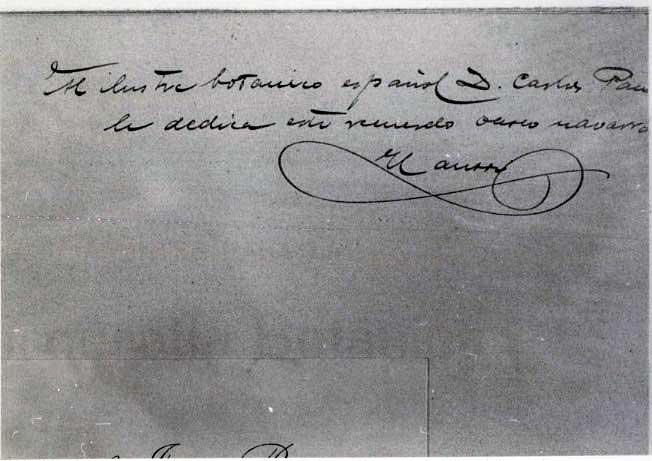 Al ilustre botanico español D. Carlos Pau
le dedica este recuerdo vasco navarro
El autor